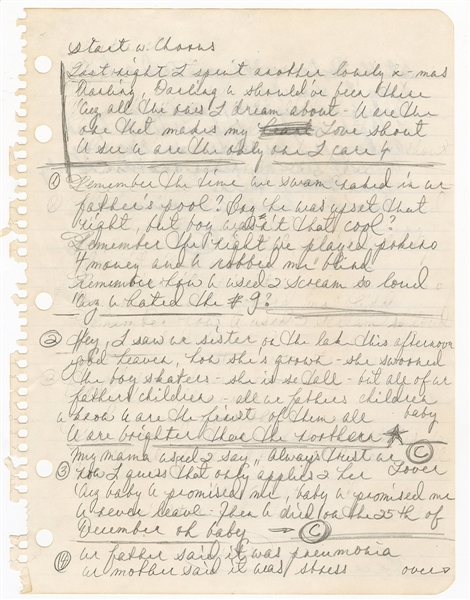 Start w. Chorus
Last night I spent another lonely x-mas
Darling, Darling U should've been there
Cuz all the ones I dream about - U are the
one that makes my Love shout
U see U are the only one I care 4
① Remember the time we swam naked in ur
father's pool? Boy he was upset that
night, but boy wasn't that cool?
Remember the night we played pokeno
4 money and U robbed me blind
Remember how U used 2 scream so loud
Cuz U hated the #9?
② Hey, I saw ur sister on the lake this afternoon
good heaven, how she's grown - she swooned
the boy skaters - she is so tall - but all of ur
father's children - all ur father's children
U know U are the finest of them all baby
U are brighter than the northern ★
My mama used 2 say, "Always trust ur Ⓒ
③ now I guess that only applies 2 her Lover
Cuz baby U promised me, baby U promised me
U never leave. Then U died on the 25th of
December oh baby → Ⓒ
④ ur father said it was pneumonia
ur mother said it was stress over